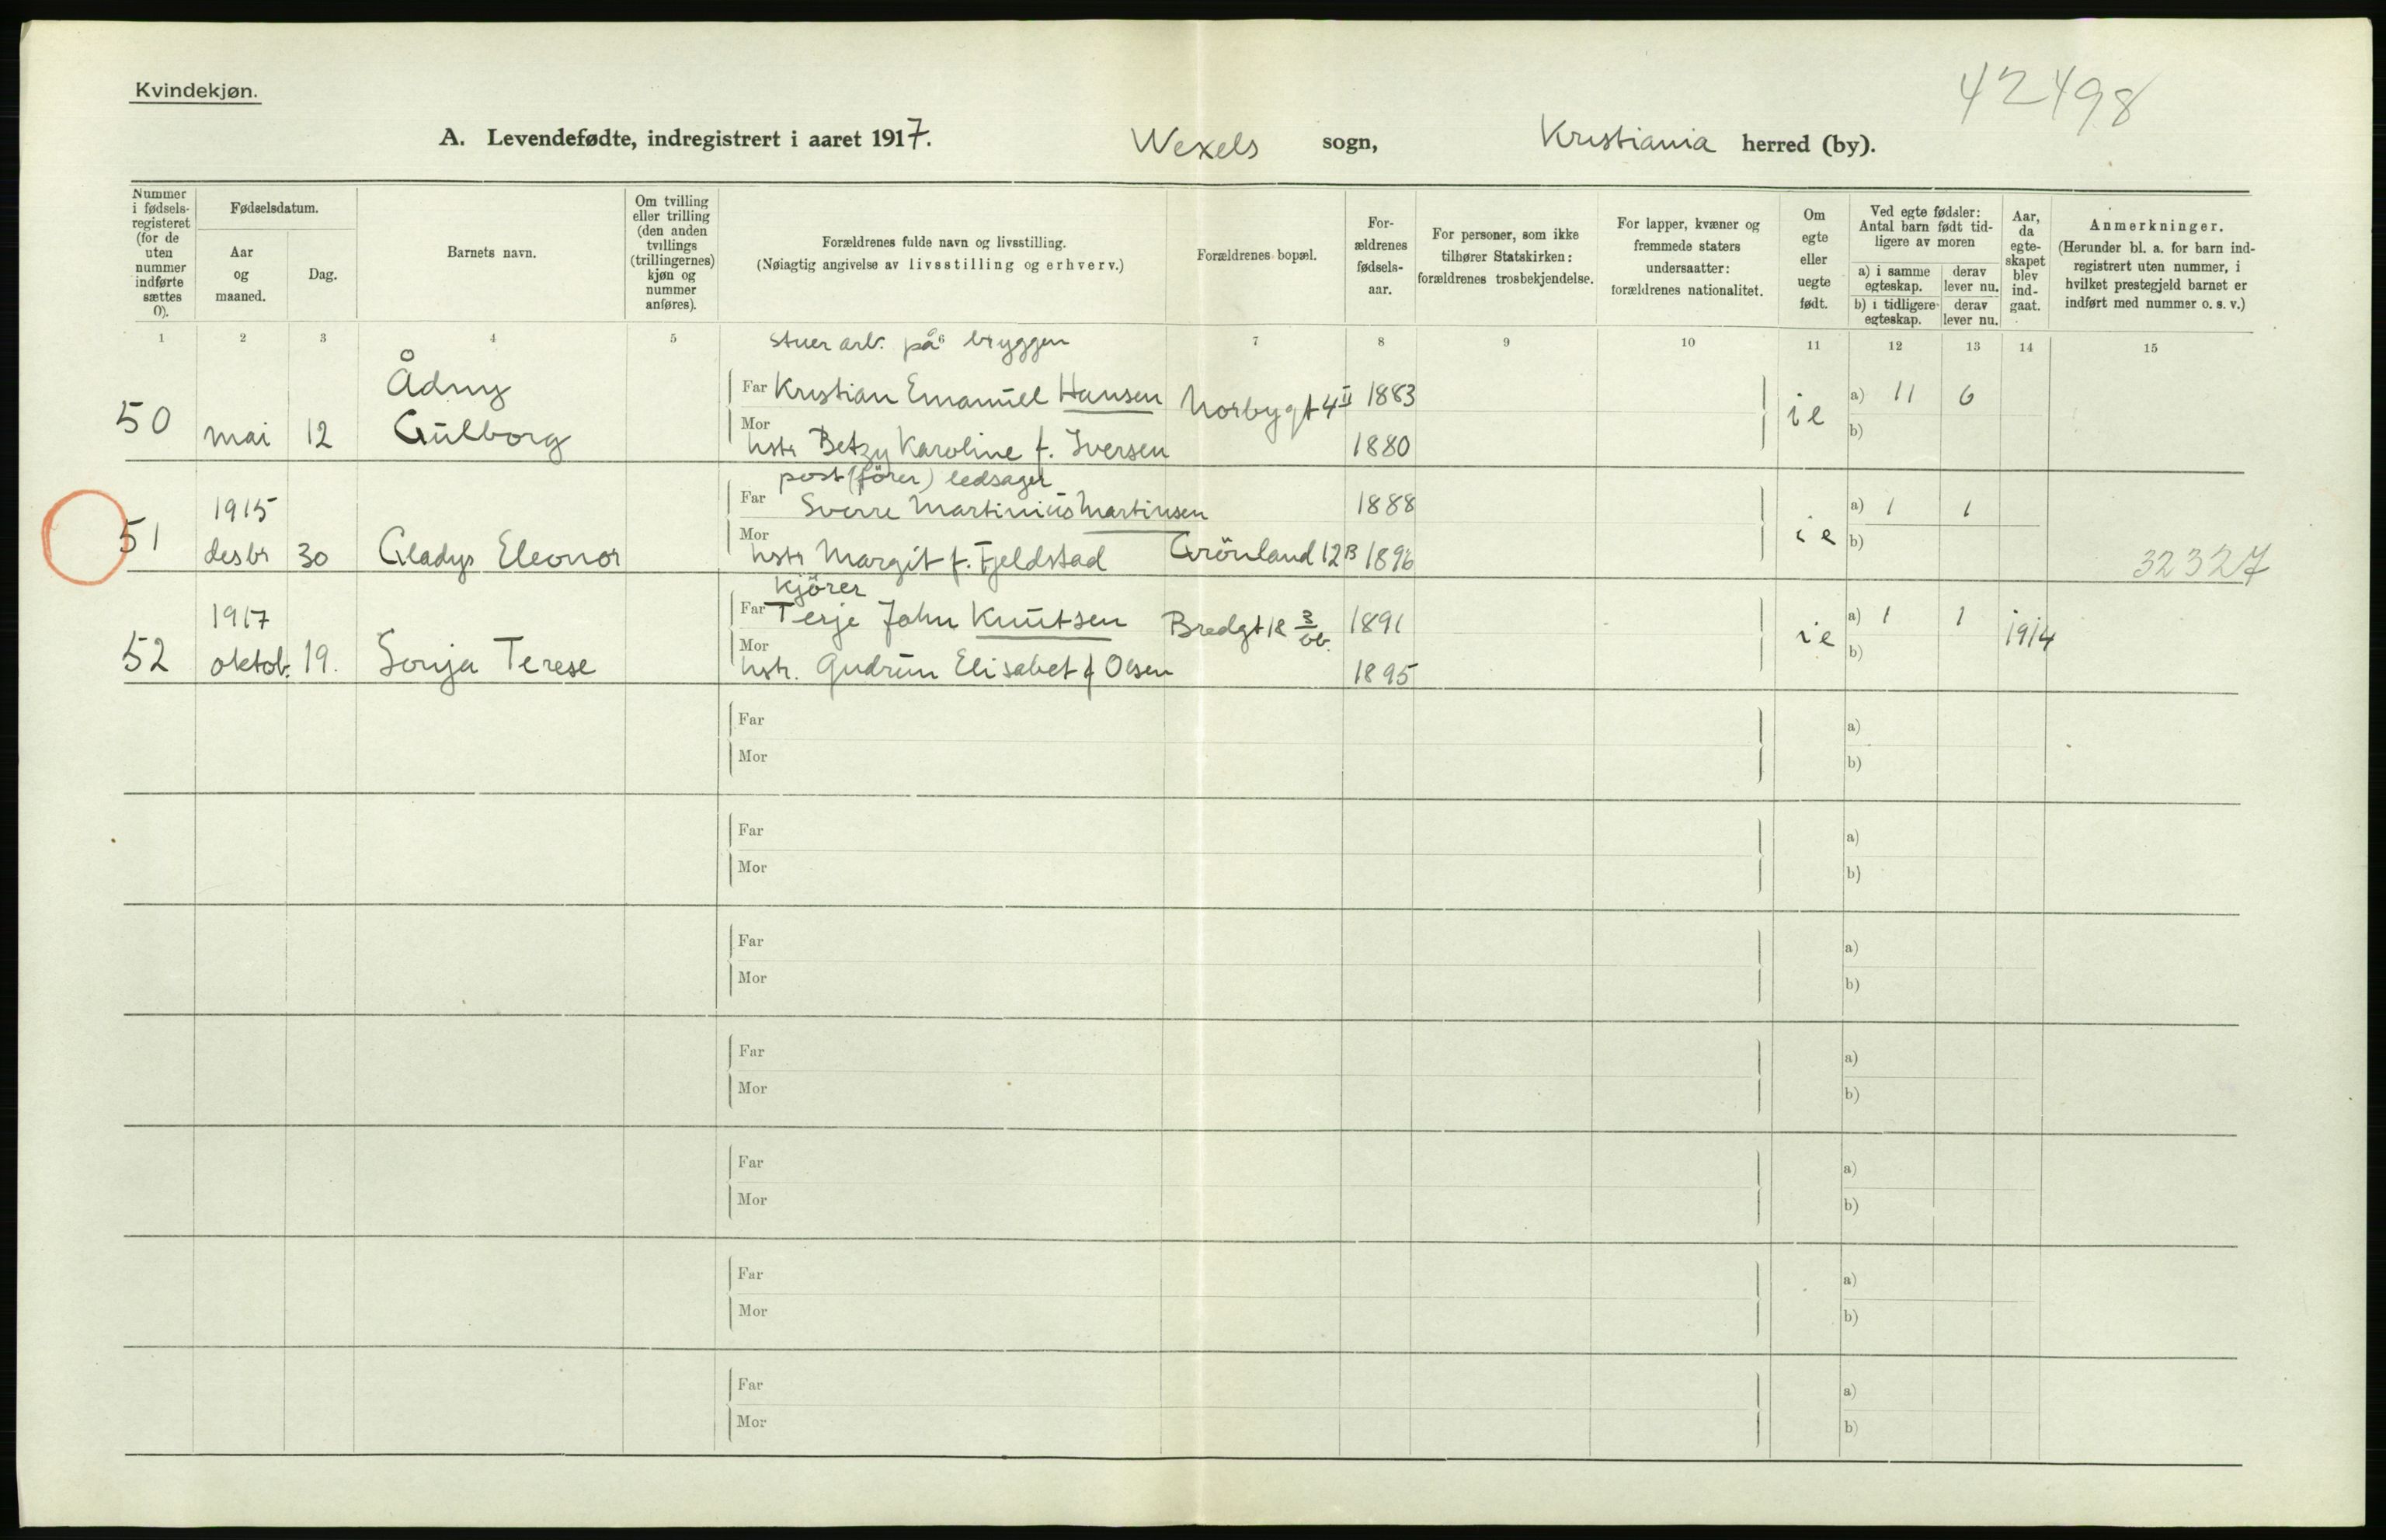 Kvindekjøn.
42498
A. Levendefødte, indregistrert i aaret 1917. Wexels sogn, Kristiania herred (by).
Nummer i fødsels-registeret (for de uten nummer indførte sættes 0).
Fødselsdatum.
Aar og maaned.
Dag.
Barnets navn.
Om tvilling eller trilling (den anden tvillings (trillingernes) kjøn og nummer anføres).
Forældrenes fulde navn og livsstilling.
(Nøiagtig angivelse av livsstilling og erhverv.)
Forældrenes bopæl.
For-ældrenes fødsels-aar.
For personer, som ikke tilhører Statskirken: forældrenes trosbekjendelse.
For lapper, kvæner og fremmede staters undersaatter: forældrenes nationalitet.
Om egte eller uegte født.
Ved egte fødsler: Antal barn født tid-ligere av moren
a) i samme egteskap. derav lever nu.
b) i tidligere egteskap. derav lever nu.
Aar, da egte-skapet blev ind-gaat.
Anmerkninger.
(Herunder bl. a. for barn ind-registrert uten nummer, i hvilket prestegjeld barnet er indført med nummer o. s. v.)
1 2 3 4 5 6 7 8 9 10 11 12 13 14 15
stuerarb. på bryggen
Ådny
Far Kristian Emanuel Hansen Norbygt 4 II 1883 a) 11 6
50 mai 12 Gulborg ie
Mor hstr Betzy Karoline f. Iversen 1880 b)
post(fører) ledsager
1915 Far Sverre Martinius Martinsen 1888 a) 1 1
51 desbr 30 Gladys Eleonor Mor hstr Margit f. Fjeldstad Grönland 12 B 1896 ie b) 32327
Kjörer
1917 Far Terje John Knutsen Bredgt 18 3/ob. 1891 a) 1 1 1914
52 oktob. 19. Sonja Terese Mor hstr. Gudrun Elisabet f Olsen 1895 ie b)
Far a)
Mor b)
Far a)
Mor b)
Far a)
Mor b)
Far a)
Mor b)
Far a)
Mor b)
Far a)
Mor b)
Far a)
Mor b)